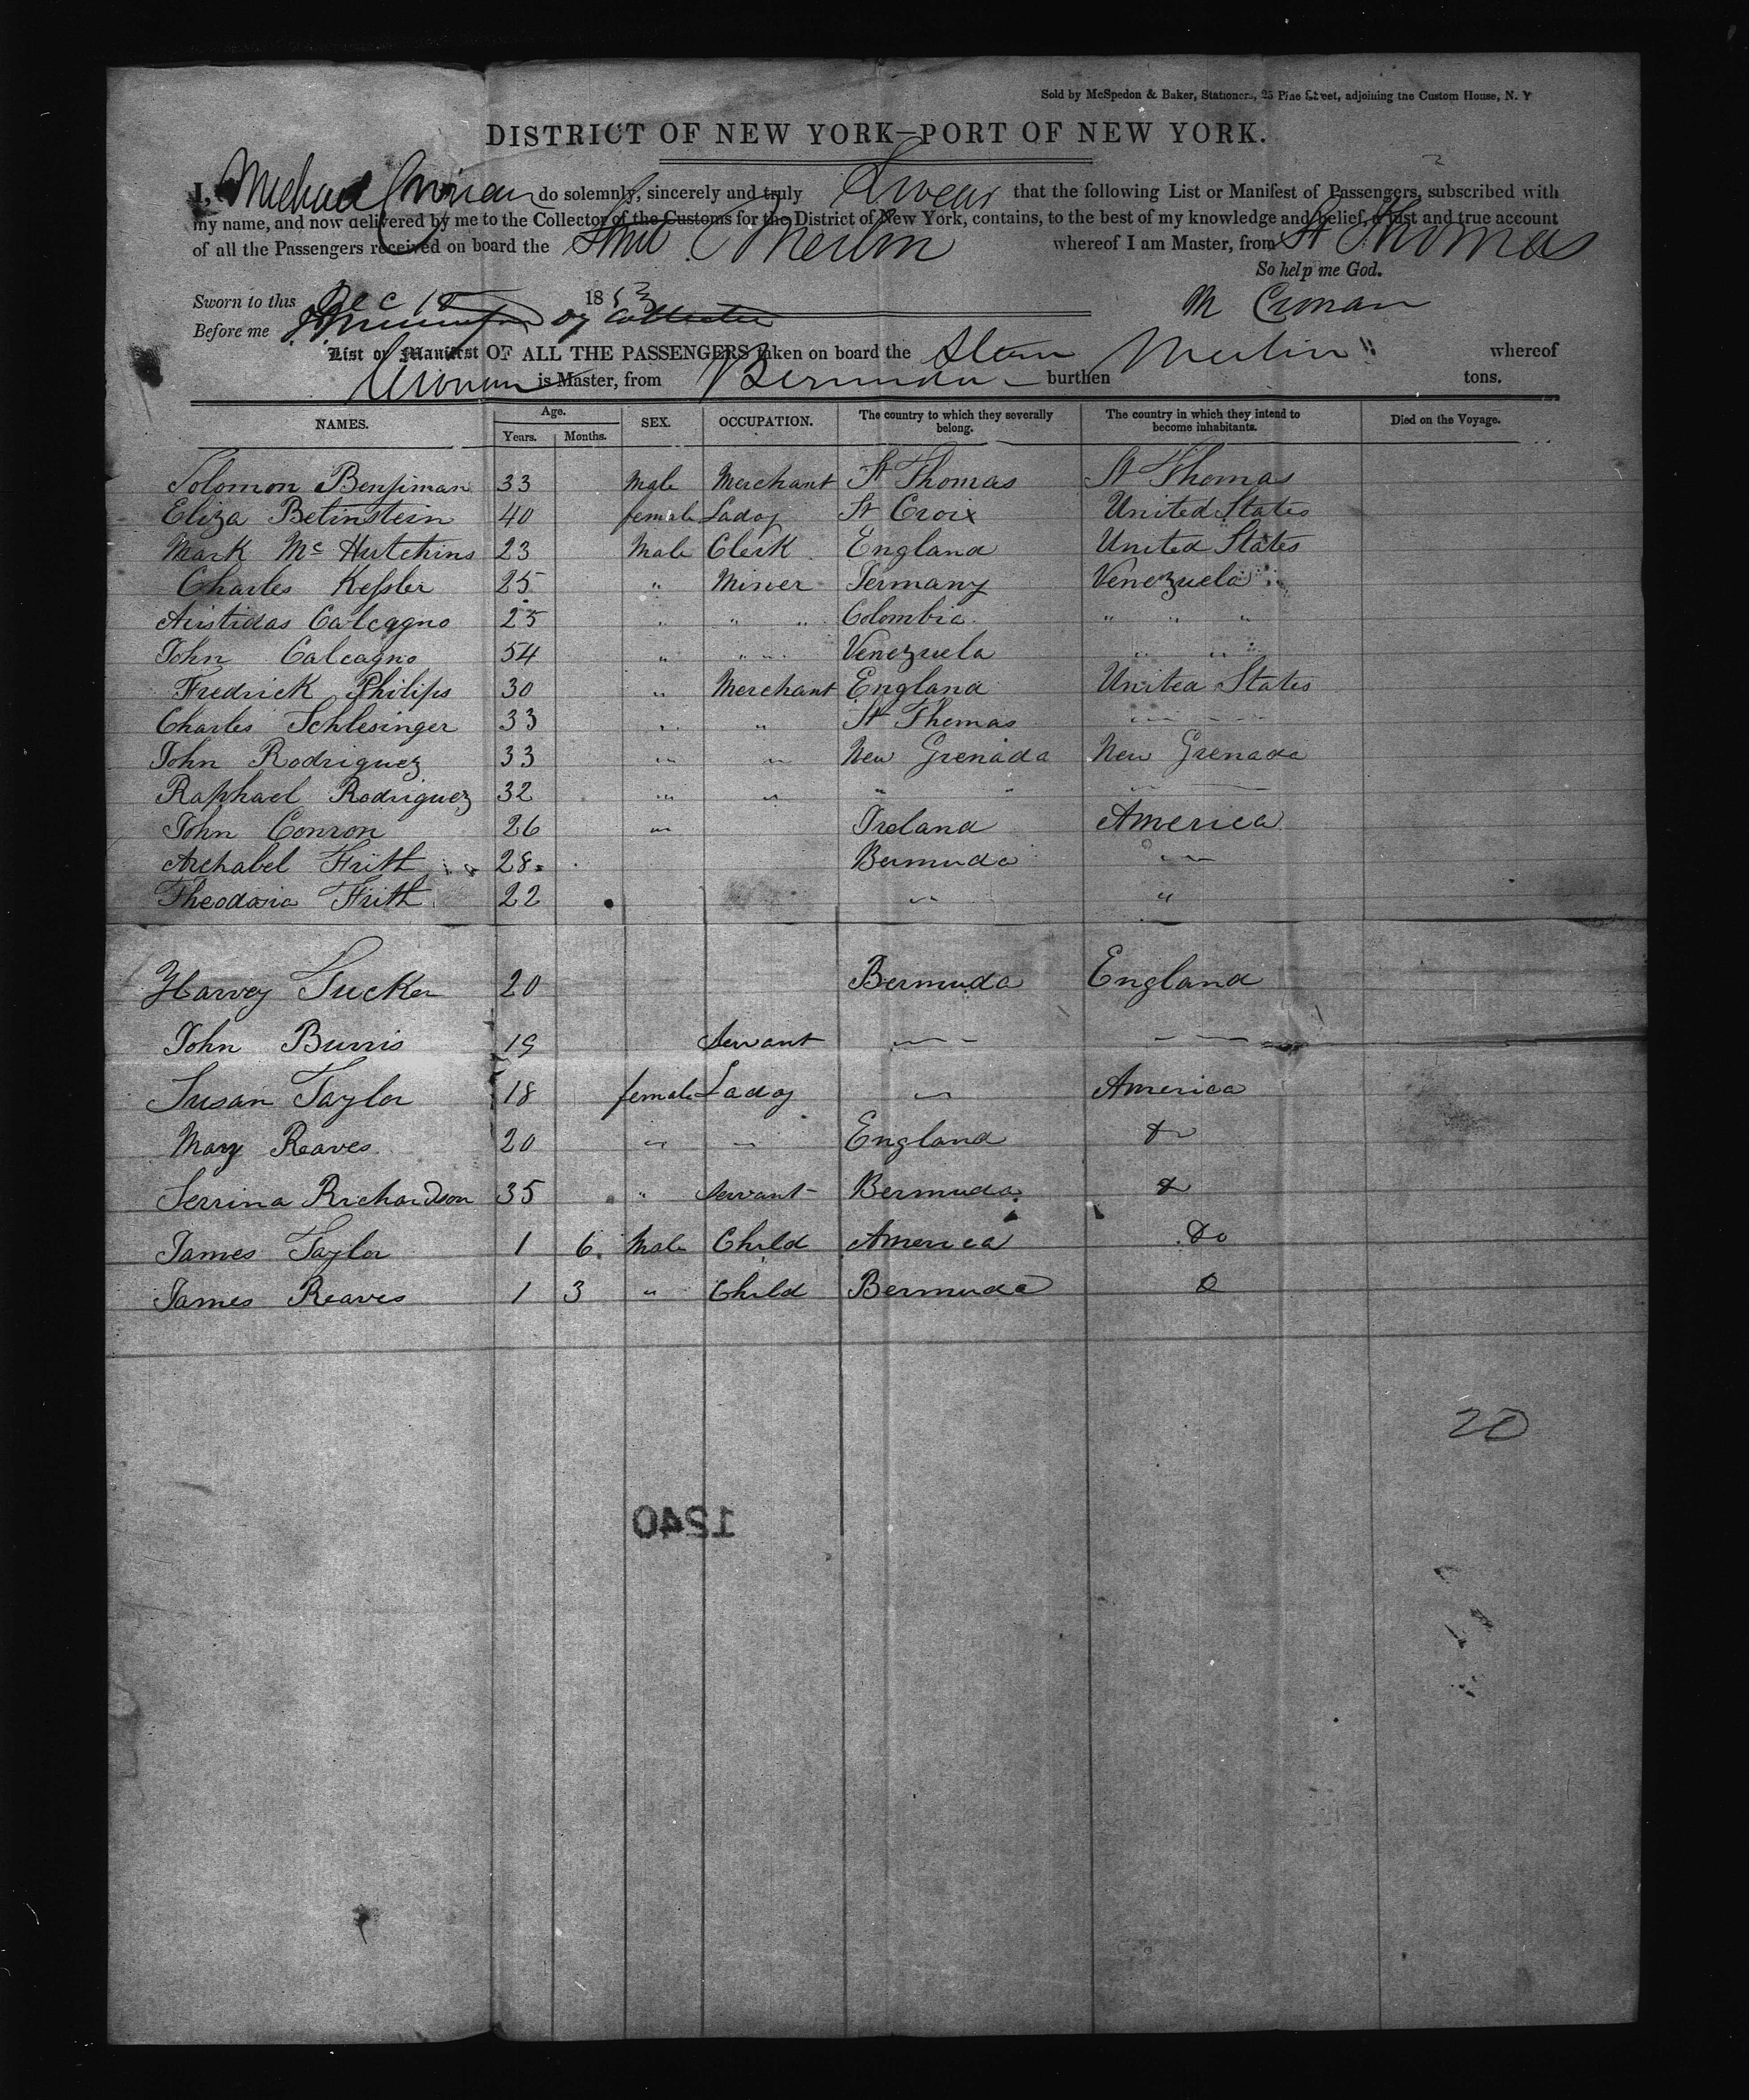 Sold by McSpedon & Baker, Stationers, 25 Pine Street, adjoining the Custom House, N. Y
DISTRICT OF NEW YORK—PORT OF NEW YORK.
I, Michael Cronan do solemnly, sincerely and truly Swear that the following List or Manifest of Passengers, subscribed with
my name, and now delivered by me to the Collector of the Customs for the District of New York, contains, to the best of my knowledge and belief, a just and true account
of all the Passengers received on board the Stmr Merlin whereof I am Master, from St Thomas
So help me God.
Sworn to this Dec 18 1853 M Cronan
Before me Dy Collector
List or Manifest OF ALL THE PASSENGERS taken on board the Steam Merlin " whereof
Cronan is Master, from Bermuda burthen tons.
NAMES. Age. Years. Months. SEX. OCCUPATION. The country to which they severally belong. The country in which they intend to become inhabitants. Died on the Voyage.
Solomon Benjiman 33 Male Merchant St Thomas St Thomas
Eliza Betinstein 40 female Lady St Croix United States
Mark Mc Hutchins 23 Male Clerk England United States
Charles Kessler 25 " Miner Germany Venezuela
Aristidas Calcagno 25 " " " Colombia " " "
John Calcagno 54 " " " Venezuela " " "
Fredrick Philips 30 " Merchant England United States
Charles Schlesinger 33 " " St Thomas " "
John Rodriguez 33 " " New Grenada New Grenada
Raphael Rodriguez 32 " " " " " "
John Conron 26 " Ireland America
Archabel Frith 28 Bermuda "
Theodosia Frith 22 " "
Harvey Tucker 20 Bermuda England
John Burris 19 Servant " "
Susan Taylor 18 female Lady " America
Mary Reaves 20 " " England Do
Serrina Richardson 35 " Servant Bermuda Do
James Taylor 1 6 Male Child America Do
James Reaves 1 3 " Child Bermuda Do
20
1240